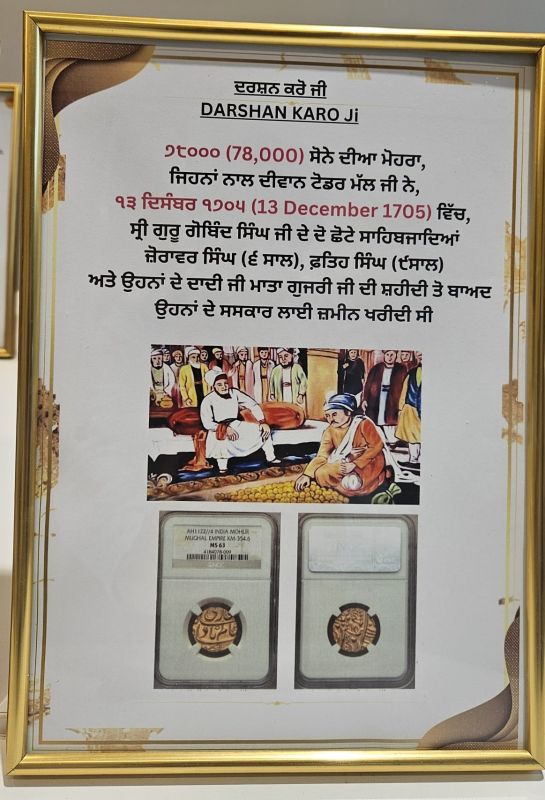 ਦਰਸ਼ਨ ਕਰੋ ਜੀ
DARSHAN KARO Ji
੭੮੦੦੦ (78,000) ਸੋਨੇ ਦੀਆ ਮੋਹਰਾ,
ਜਿਹਨਾਂ ਨਾਲ ਦੀਵਾਨ ਟੋਡਰ ਮੱਲ ਜੀ ਨੇ,
੧੩ ਦਿਸੰਬਰ ੧੭੦੫ (13 December 1705) ਵਿੱਚ,
ਸ੍ਰੀ ਗੁਰੂ ਗੋਬਿੰਦ ਸਿੰਘ ਜੀ ਦੇ ਦੋ ਛੋਟੇ ਸਾਹਿਬਜਾਦਿਆਂ
ਜ਼ੋਰਾਵਰ ਸਿੰਘ (੬ ਸਾਲ), ਫ਼ਤਿਹ ਸਿੰਘ (੯ਸਾਲ)
ਅਤੇ ਉਹਨਾਂ ਦੇ ਦਾਦੀ ਜੀ ਮਾਤਾ ਗੁਜਰੀ ਜੀ ਦੀ ਸ਼ਹੀਦੀ ਤੋ ਬਾਅਦ
ਉਹਨਾਂ ਦੇ ਸਸਕਾਰ ਲਾਈ ਜ਼ਮੀਨ ਖਰੀਦੀ ਸੀ
AH1122//4 INDIA MOHUR
MUGHAL EMPIRE KM-354.6
MS 63
4184078-009
NGC